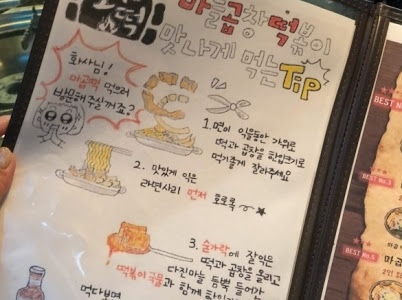 마늘곱창떡볶이
맛나게 먹는 TIP
화사님!
마곱떡 먹으러
방문해주실꺼죠?
1. 면이 익을동안 가위로
떡과 곱창을 한입크기로
먹기좋게 잘라주세요
2. 맛있게 익은
라면사리 먼저 호로록
3. 숟가락에 잘익은
떡과 곱창을 올리고
다진마늘 듬뿍 들어가
떡볶이 국물과 함께
먹다보면
BEST N
BEST No.3
마곱
2인
BEST No.5